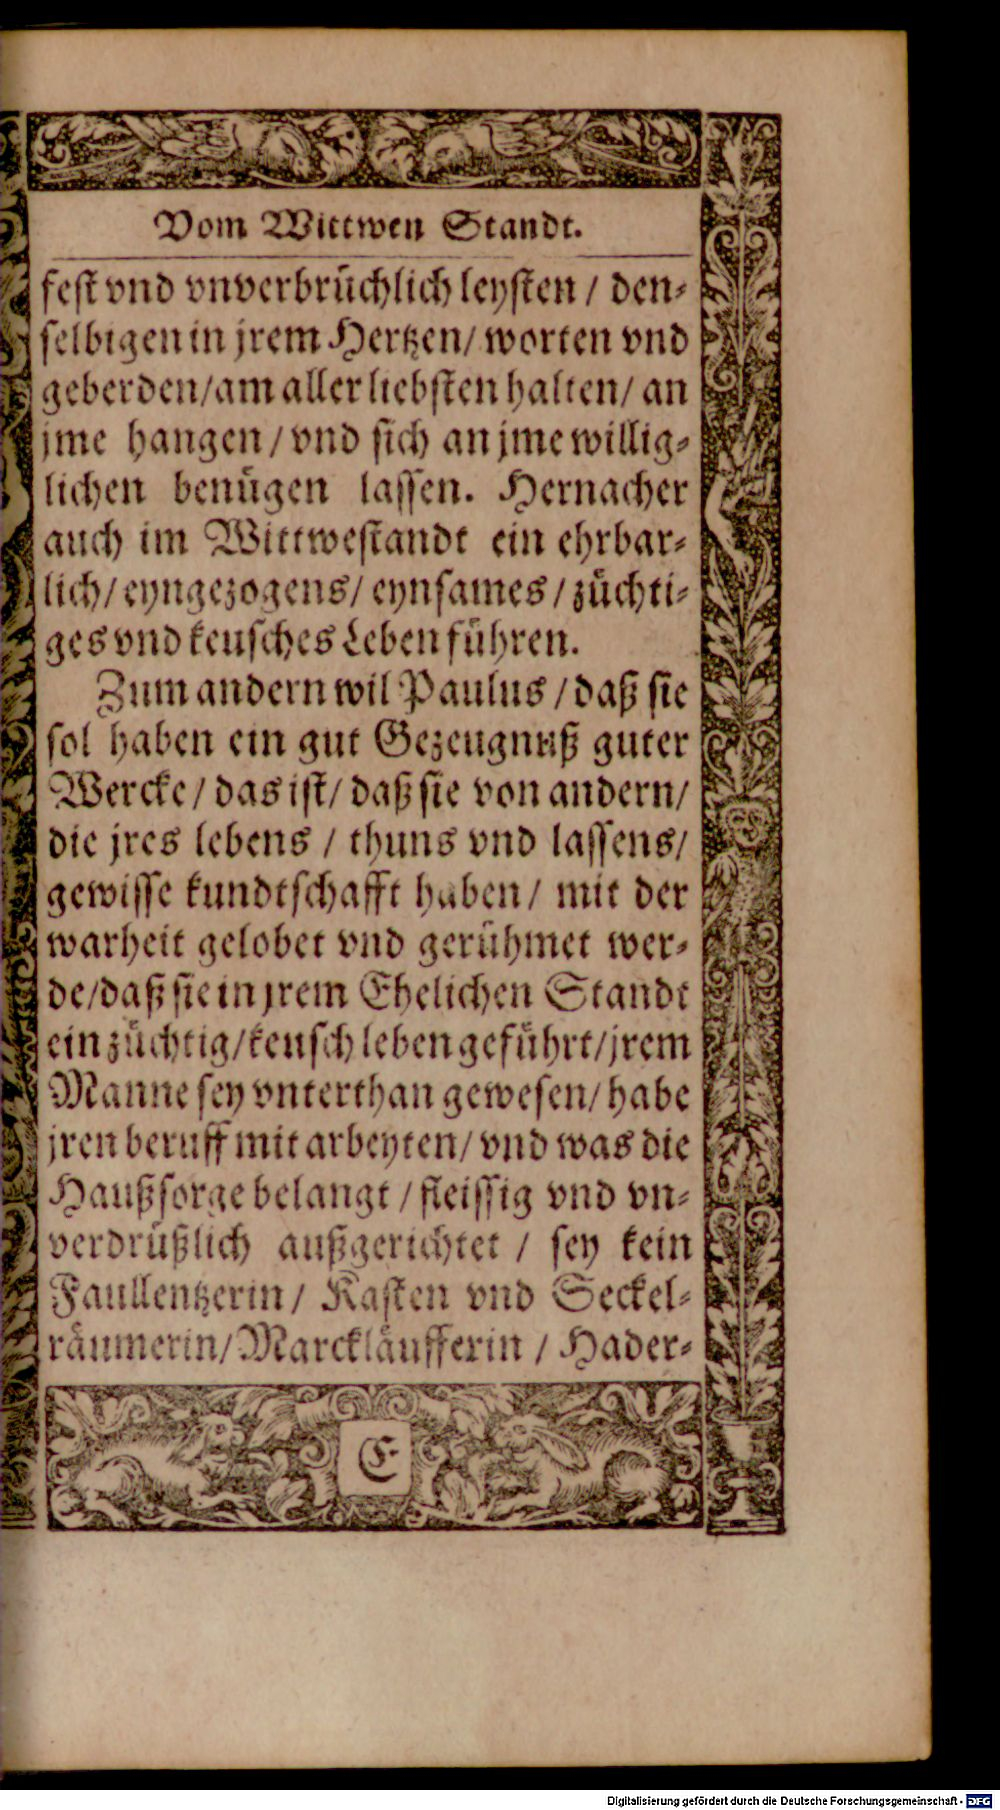 Vom Wittwen Standt.
fest vnd vnverbrüchlich leysten / den⸗
selbigen in jrem Hertzen/ worten vnd
geberden/am aller liebsten halten/ an
jme hangen / vnd sich an jme willig⸗
lichen benügen lassen. Hernacher
auch im Wittwestandt ein ehrbar⸗
lich/ eyngezogens/ eynsames / züchti⸗
ges vnd keusches Leben führen.
Zum andern wil Paulus / daß sie
sol haben ein gut Gezeugnuß guter
Wercke / das ist/ daß sie von andern/
die jres lebens / thuns vnd lassens/
gewisse kundtschafft haben/ mit der
warheit gelobet vnd gerühmet wer⸗
de/daß sie in jrem Ehelichen Standt
ein züchtig/keusch leben geführt/jrem
Manne sey vnterthan gewesen/ habe
jren beruff mit arbeyten/ vnd was die
Haußsorge belangt / fleissig vnd vn⸗
verdrüßlich außgerichtet / sey kein
Faullentzerin/ Kasten vnd Seckel⸗
räumerin/Marckläufferin / Hader⸗
E
Digitalisierung gefördert durch die Deutsche Forschungsgemeinschaft - DFG